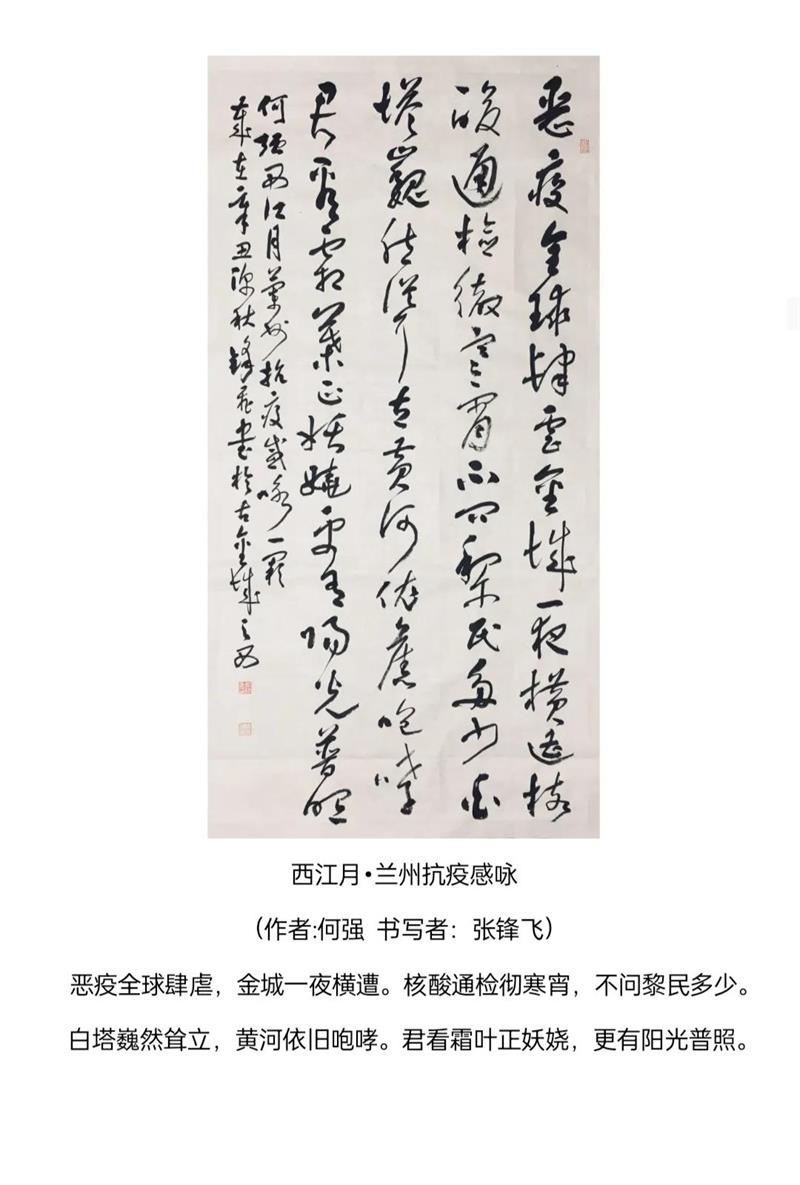 恶疫全球肆虐金城一夜横遭核
酸通检彻寒宵不问黎民多少白
塔巍然耸立黄河依旧咆哮
君看霜叶正妖娆更有阳光普照
何强西江月兰州抗疫感咏一阕
岁在辛丑深秋锋飞书于古金城之西
西江月•兰州抗疫感咏
（作者:何强 书写者：张锋飞）
恶疫全球肆虐，金城一夜横遭。核酸通检彻寒宵，不问黎民多少。
白塔巍然耸立，黄河依旧咆哮。君看霜叶正妖娆，更有阳光普照。